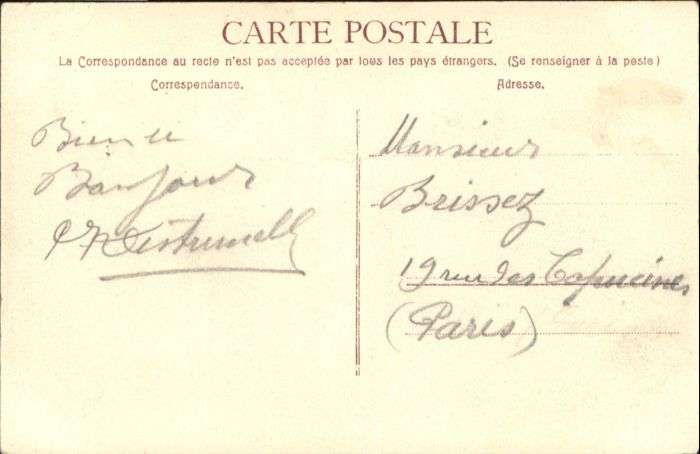 CARTE POSTALE
La Correspondance au recto n'est pas acceptée par tous les pays étrangers. (Se renseigner à la poste)
Correspondance.
Adresse.
Bien
Bonjour
Monsieur
Brissez
19 rue des Capucines
(Paris)